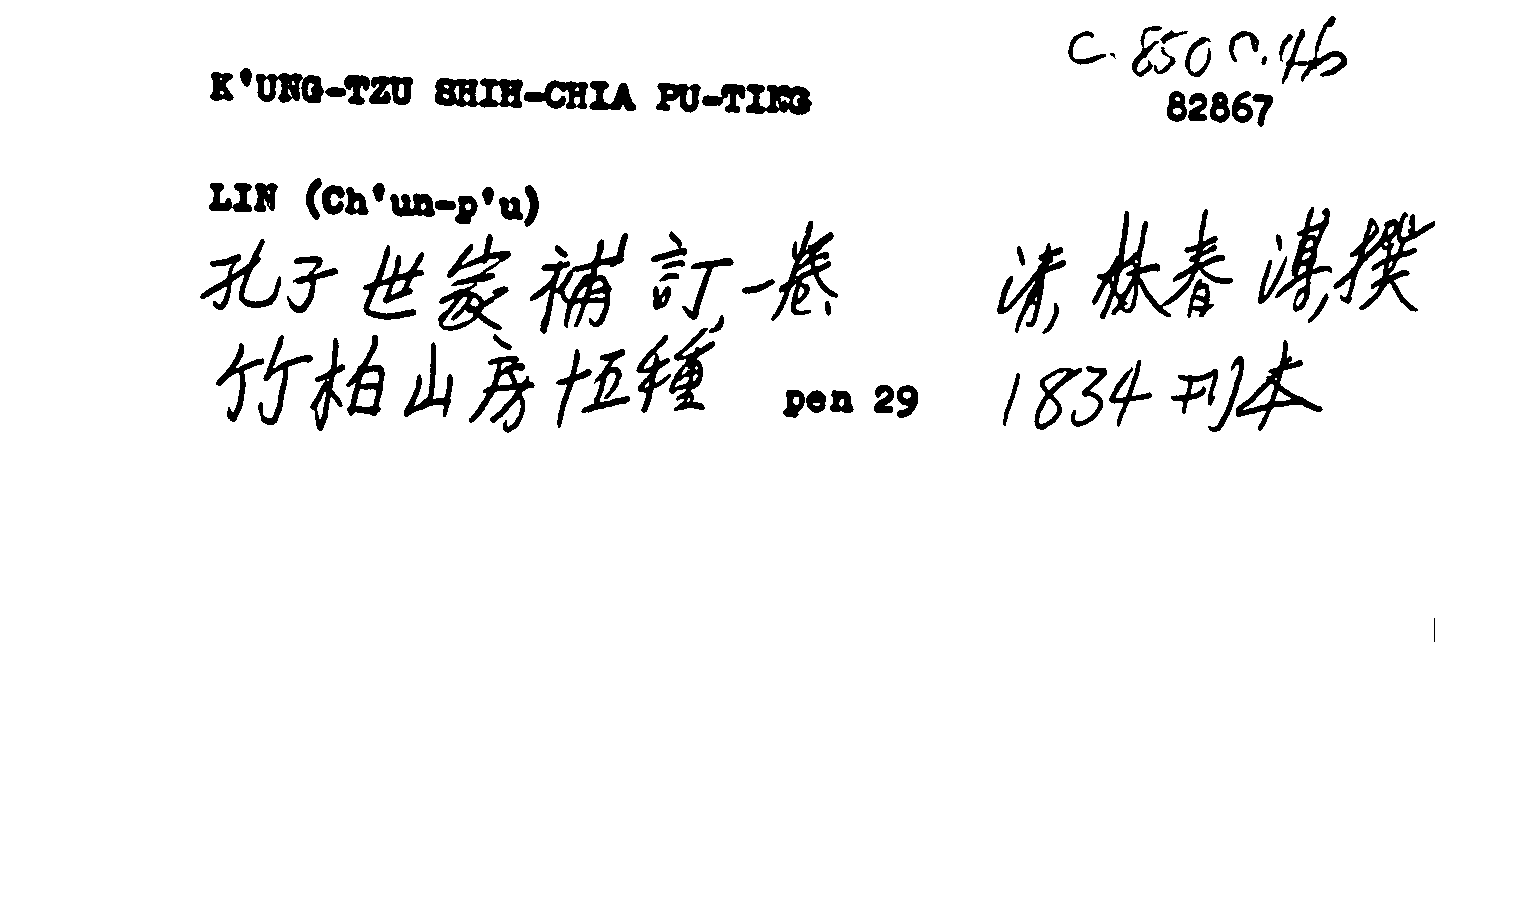 C. 850 n. 46
K'UNG-TZU SHIH-CHIA PU-TING
82867
LIN (Ch'un-p'u)
孔子世家補訂一卷 清,林春溥,撰
竹柏山房十五種 pen 29 1834刊本